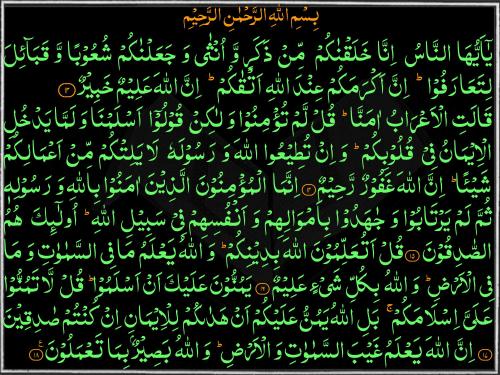 بِسْمِ اللهِ الرَّحْمٰنِ الرَّحِيْمِ
يٰٓاَيُّهَا النَّاسُ اِنَّا خَلَقْنٰكُمْ مِّنْ ذَكَرٍ وَّ اُنْثٰى وَ جَعَلْنٰكُمْ شُعُوْبًا وَّ قَبَآئِلَ
لِتَعَارَفُوْا ؕ اِنَّ اَكْرَمَكُمْ عِنْدَ اللهِ اَتْقٰكُمْ ؕ اِنَّ اللهَ عَلِيْمٌ خَبِيْرٌ ﴿۱۳﴾
قَالَتِ الْاَعْرَابُ اٰمَنَّا ؕ قُلْ لَّمْ تُؤْمِنُوْا وَلٰكِنْ قُوْلُوْٓا اَسْلَمْنَا وَ لَمَّا يَدْخُلِ
الْاِيْمَانُ فِيْ قُلُوْبِكُمْ ؕ وَ اِنْ تُطِيْعُوا اللهَ وَ رَسُوْلَهٗ لَا يَلِتْكُمْ مِّنْ اَعْمَالِكُمْ
شَيْئًا ؕ اِنَّ اللهَ غَفُوْرٌ رَّحِيْمٌ ﴿۱۴﴾ اِنَّمَا الْمُؤْمِنُوْنَ الَّذِيْنَ اٰمَنُوْا بِاللهِ وَ رَسُوْلِهٖ
ثُمَّ لَمْ يَرْتَابُوْا وَ جٰهَدُوْا بِاَمْوَالِهِمْ وَ اَنْفُسِهِمْ فِيْ سَبِيْلِ اللهِ ؕ اُولٰٓئِكَ هُمُ
الصّٰدِقُوْنَ ﴿۱۵﴾ قُلْ اَتُعَلِّمُوْنَ اللهَ بِدِيْنِكُمْ ؕ وَ اللهُ يَعْلَمُ مَا فِي السَّمٰوٰتِ وَ مَا
فِي الْاَرْضِ ؕ وَ اللهُ بِكُلِّ شَيْءٍ عَلِيْمٌ ﴿۱۶﴾ يَمُنُّوْنَ عَلَيْكَ اَنْ اَسْلَمُوْا ؕ قُلْ لَّا تَمُنُّوْا
عَلَيَّ اِسْلَامَكُمْ ۚ بَلِ اللهُ يَمُنُّ عَلَيْكُمْ اَنْ هَدٰىكُمْ لِلْاِيْمَانِ اِنْ كُنْتُمْ صٰدِقِيْنَ
﴿۱۷﴾ اِنَّ اللهَ يَعْلَمُ غَيْبَ السَّمٰوٰتِ وَ الْاَرْضِ ؕ وَ اللهُ بَصِيْرٌۢ بِمَا تَعْمَلُوْنَ ﴿۱۸﴾